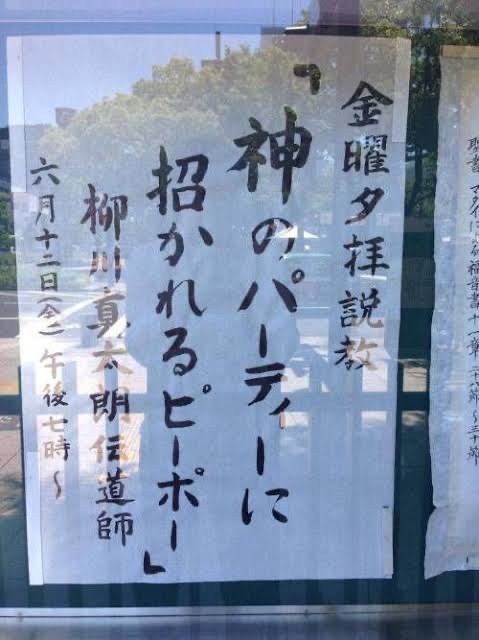 聖書 マタイによる福音書十一章二十八節～三十節
金曜夕拝説教
「神のパーティーに
招かれるピーポー」
柳川真太朗伝道師
六月十二日(金)午後七時～